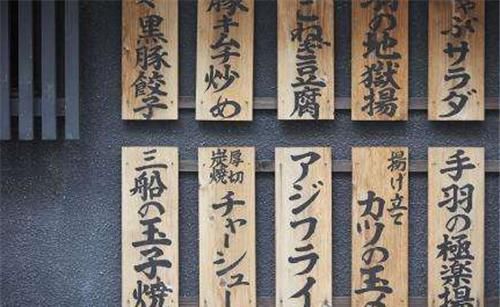 ゃぶサラダ
の地獄揚
こねぎ豆腐
豚キムチ炒め
黒豚餃子
手羽の極楽揚
揚げ立て
カツの玉
アジフライ
厚切
炭焼
チャーシュー
三船の玉子焼